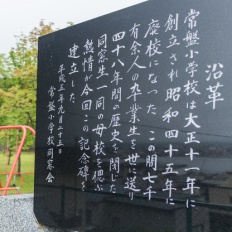 沿革
常盤小学校は大正十一年に
創立され昭和四十五年に
廃校になった この間七千
有余人の卒業生を世に送り
四十八年間の歴史を閉じた
同窓生一同の母校を偲ぶ
熱情が今回この記念碑を
建立した
平成五年九月二十三日
常盤小学校同窓会